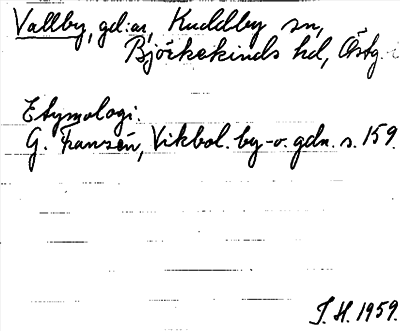 Vallby, gd:ar, Kuddby sn,
Björkekinds hd, Östg.
Etymologi.
G. Franzén, Vikbol. by-o. gdn. s. 159.
I. H. 1959.